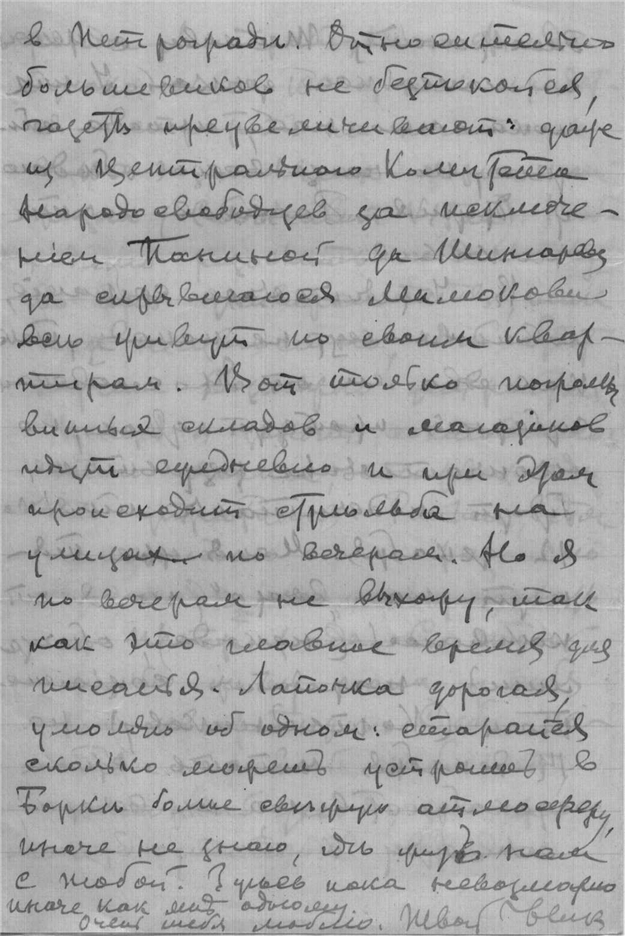 в Петрограде. Относительно
большевиков не беспокойся,
газеты преувеличивают: даже
из Центрального Комитета
Народосвободцев за исключе-
нием Паниной да Шингарева
да скрывшагося Милюкова
все живут по своим квар-
тирам. Вот только погромы
винных складов и магазинов
идут ежедневно и при этом
происходит стрельба на
улицах по вечерам. Но я
по вечерам не выхожу, так
как это главное время для
писанья. Лапочка дорогая,
умоляю об одном: старайся
сколько можешь устроить в
Борки более свежую атмосферу,
иначе не знаю, где жить нам
с тобой. Здесь пока невозможно
иначе как мне одному
Очень тебя люблю. Твой